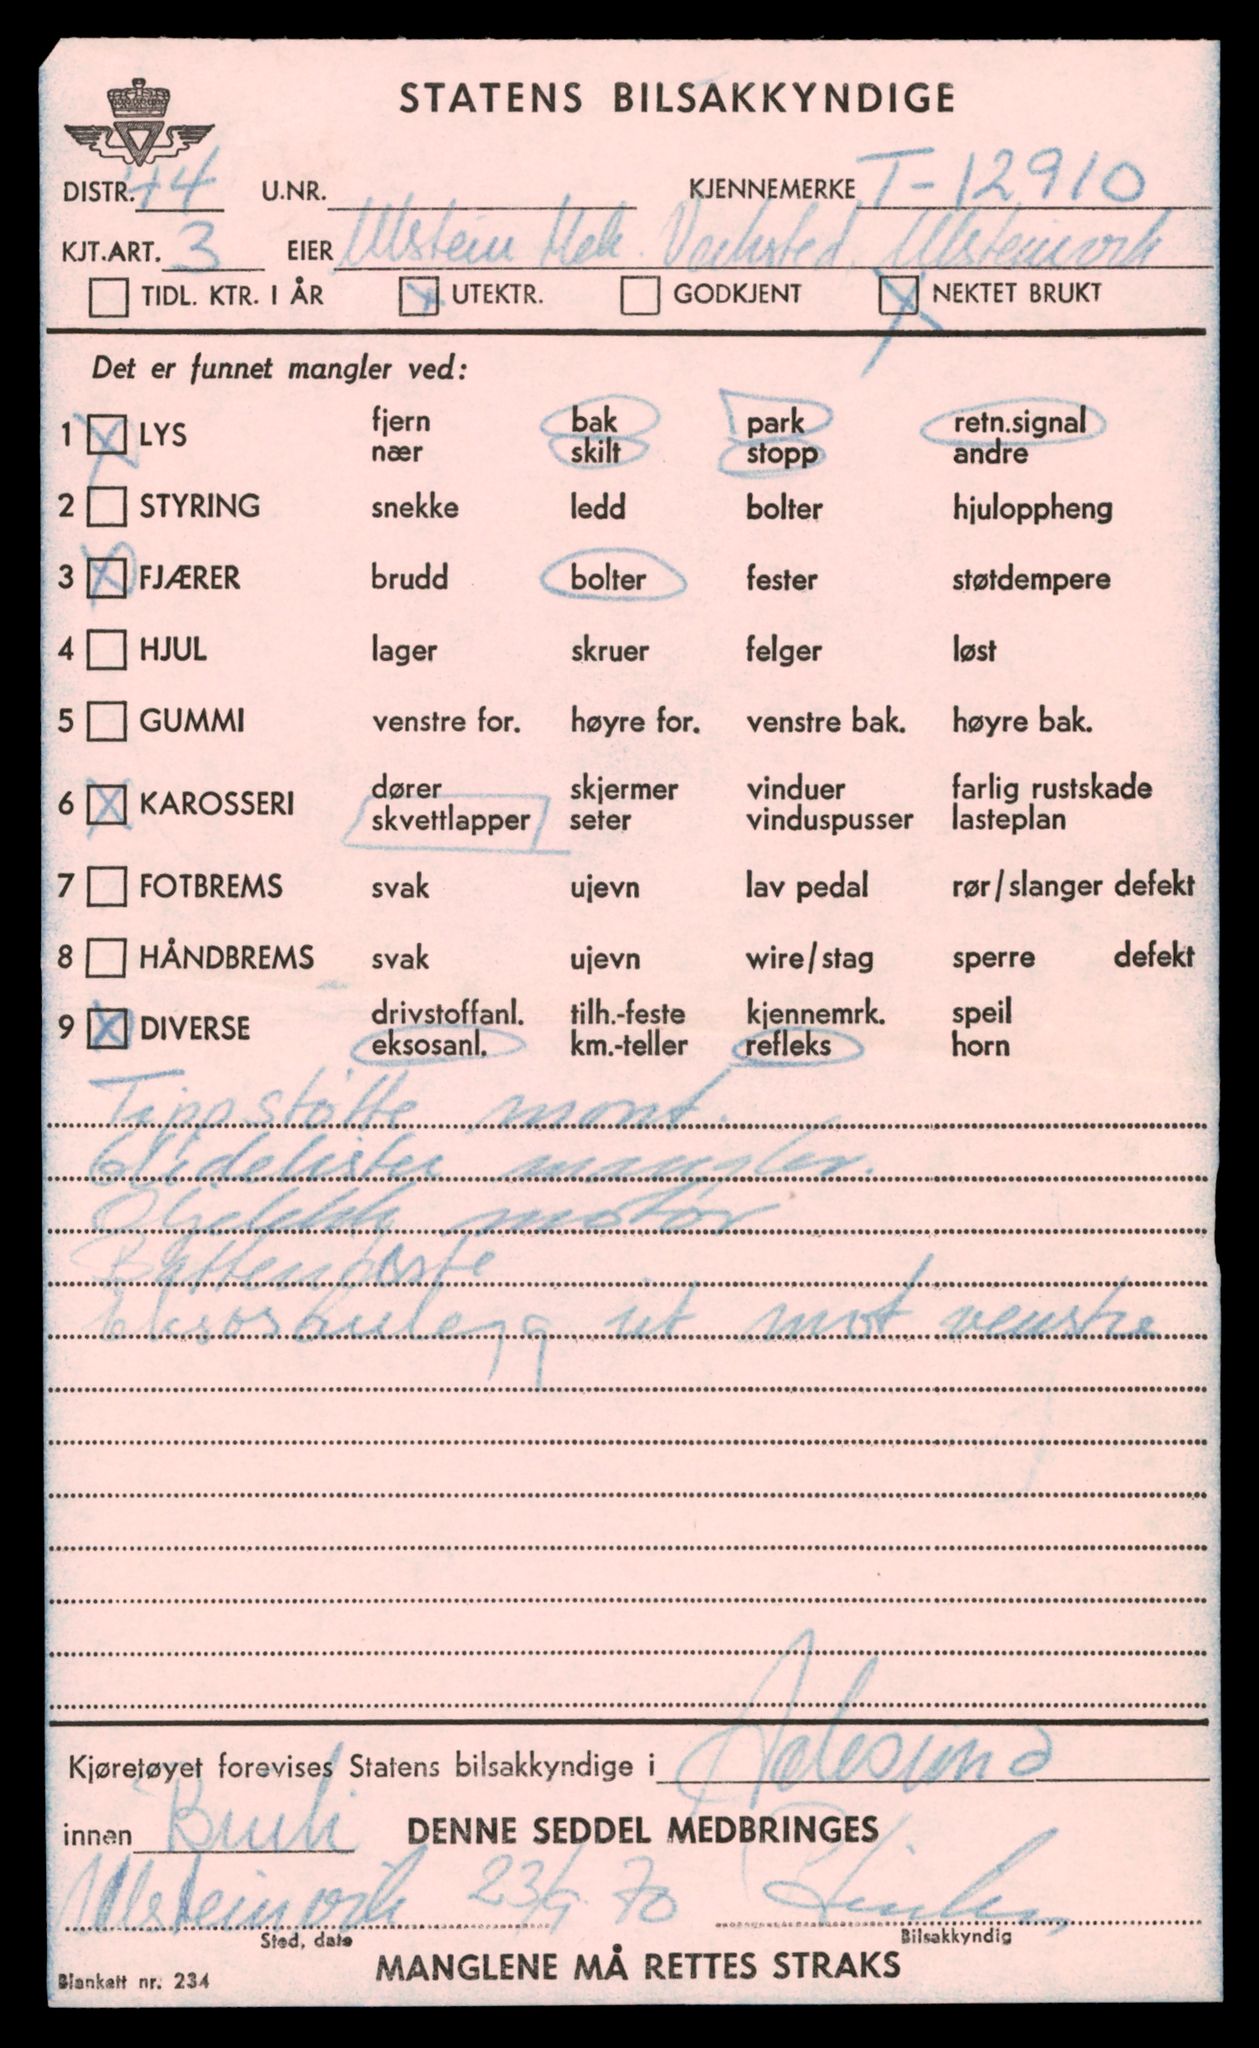 STATENS BILSAKKYNDIGE
DISTR. 44 U.NR. KJENNEMERKE T-12910
KJT.ART. 3 EIER Ulstein Mek. Verksted, Ulsteinvik
TIDL. KTR. I ÅR UTEKTR. GODKJENT NEKTET BRUKT
Det er funnet mangler ved:
1 LYS fjern bak park retn.signal
nær skilt stopp andre
2 STYRING snekke ledd bolter hjuloppheng
3 FJÆRER brudd bolter fester støtdempere
4 HJUL lager skruer felger løst
5 GUMMI venstre for. høyre for. venstre bak. høyre bak.
6 KAROSSERI dører skjermer vinduer farlig rustskade
skvettlapper seter vinduspusser lasteplan
7 FOTBREMS svak ujevn lav pedal rør/slanger defekt
8 HÅNDBREMS svak ujevn wire/stag sperre defekt
9 DIVERSE drivstoffanl. tilh.-feste kjennemrk. speil
eksosanl. km.-teller refleks horn
Tippstøtte mont.
Glidelister mangler.
Oljelekk motor
Eksosanlegg ut mot venstre
Kjøretøyet forevises Statens bilsakkyndige i Aalesund
innen Bruk DENNE SEDDEL MEDBRINGES
Ulsteinvik 23/9 70
Sted, date Bilsakkyndig
MANGLENE MÅ RETTES STRAKS
Blankett nr. 234